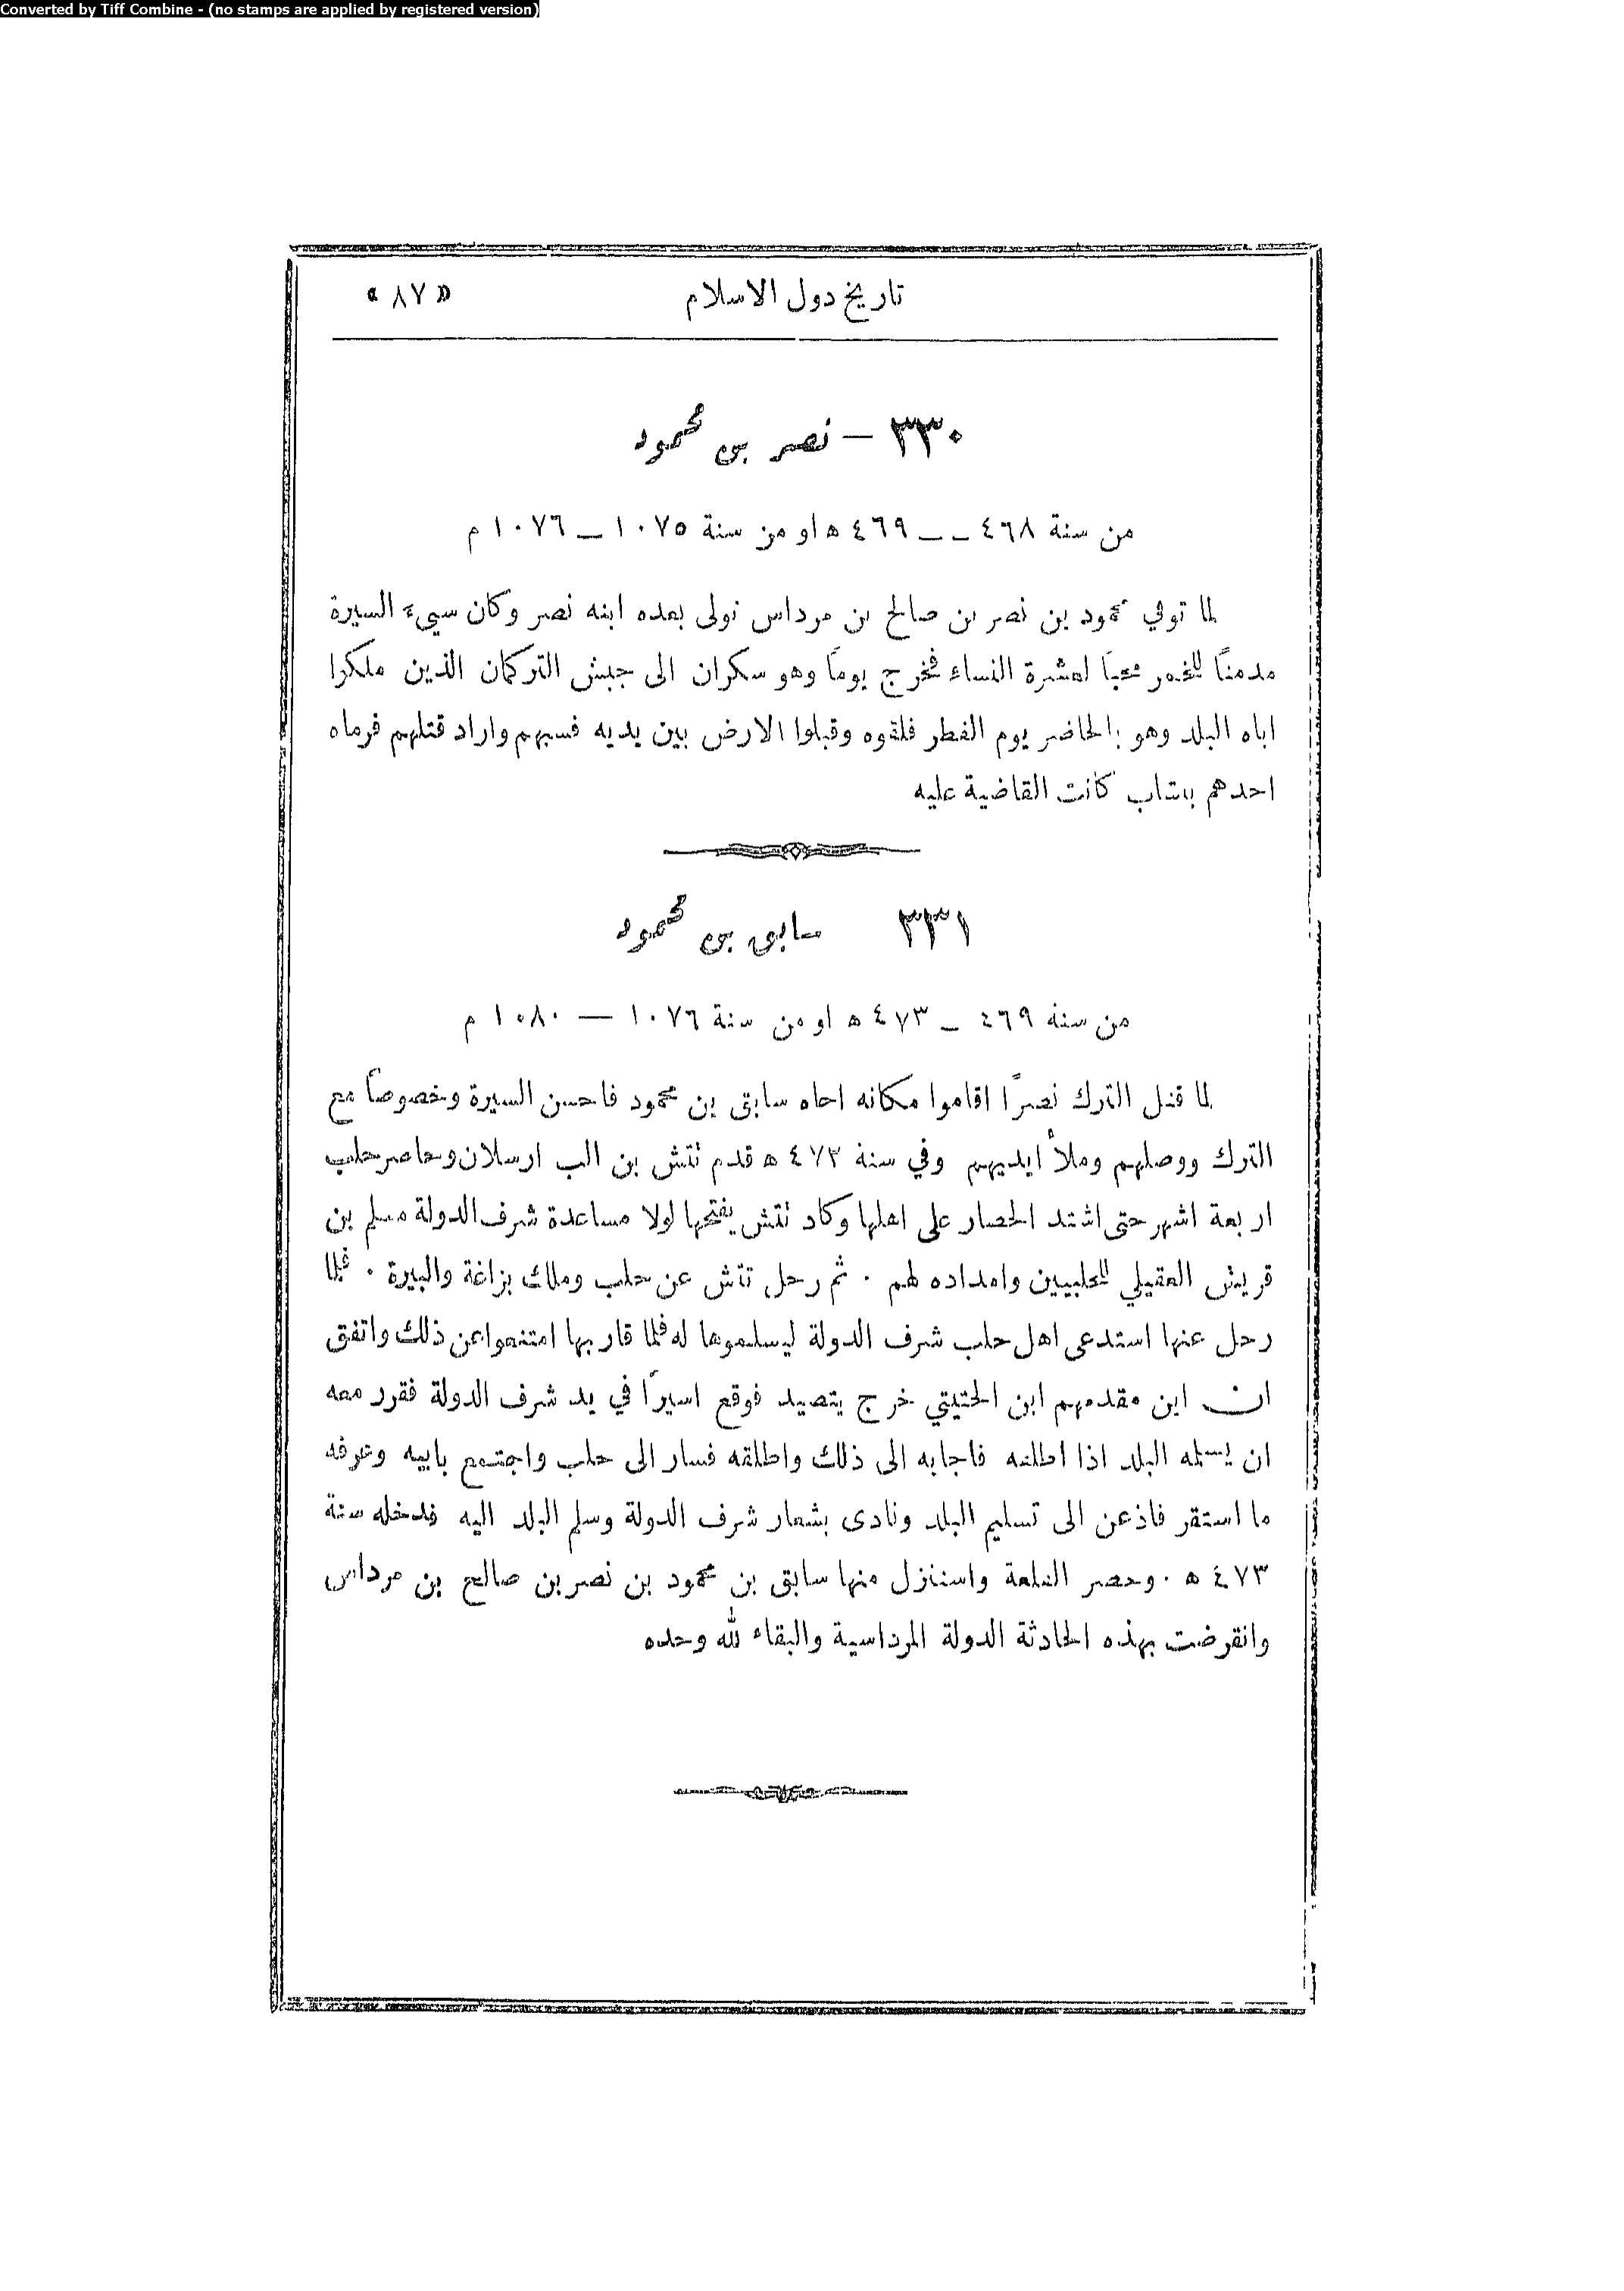 Converted by Tiff Combine - (no stamps are applied by registered version)
تاريخ دول الاسلام «٨٧»
٣٣٠ – نصر بن محمود
من سنة ٤٦٨ – – ٤٦٩ ه او من سنة ١٠٧٥ – ١٠٧٦ م
لما توفي محمود بن نصر بن صالح بن مرداس تولى بعده ابنه نصر وكان سيىء السيرة
مدمنًا للخمر محبًا لعشرة النساء فخرج يومًا وهو سكران الى جيش التركمان الذين ملكوا
اباه البلد وهو بالحاضر يوم الفطر فلقوه وقبلوا الارض بين يديه فسبهم واراد قتلهم فرماه
احدهم بنشاب كانت القاضية عليه
٣٣١ سابق بن محمود
من سنة ٤٦٩ – ٤٧٣ ه او من سنة ١٠٧٦ – ١٠٨٠ م
لما قتل الترك نصرًا اقاموا مكانه اخاه سابق بن محمود فاحسن السيرة وخصوصًا مع
الترك ووصلهم وملأ ايديهم وفي سنة ٤٧٣ ه قدم تتش بن الب ارسلان وحاصر حلب
اربعة اشهر حتى اشتد الحصار على اهلها وكاد تتش يفتحها لولا مساعدة شرف الدولة مسلم بن
قريش العقيلي للحلبيين وامداده لهم . ثم رحل تتش عن حلب وملك بزاغة والبيرة . فلما
رحل عنها استدعى اهل حلب شرف الدولة ليسلموها له فلما قاربها امتنعوا عن ذلك واتفق
ان ابن مقدمهم ابن الحتيتي خرج يتصيد فوقع اسيرًا في يد شرف الدولة فقرر معه
ان يسلمه البلد اذا اطلقه فاجابه الى ذلك واطلقه فسار الى حلب واجتمع بابيه وعرفه
ما استقر فاذعن الى تسليم البلد ونادى بشعار شرف الدولة وسلم البلد اليه فدخله سنة
٤٧٣ ه . وحصر القلعة واستنزل منها سابق بن محمود بن نصر بن صالح بن مرداس
وانقرضت بهذه الحادثة الدولة المرداسية والبقاء لله وحده